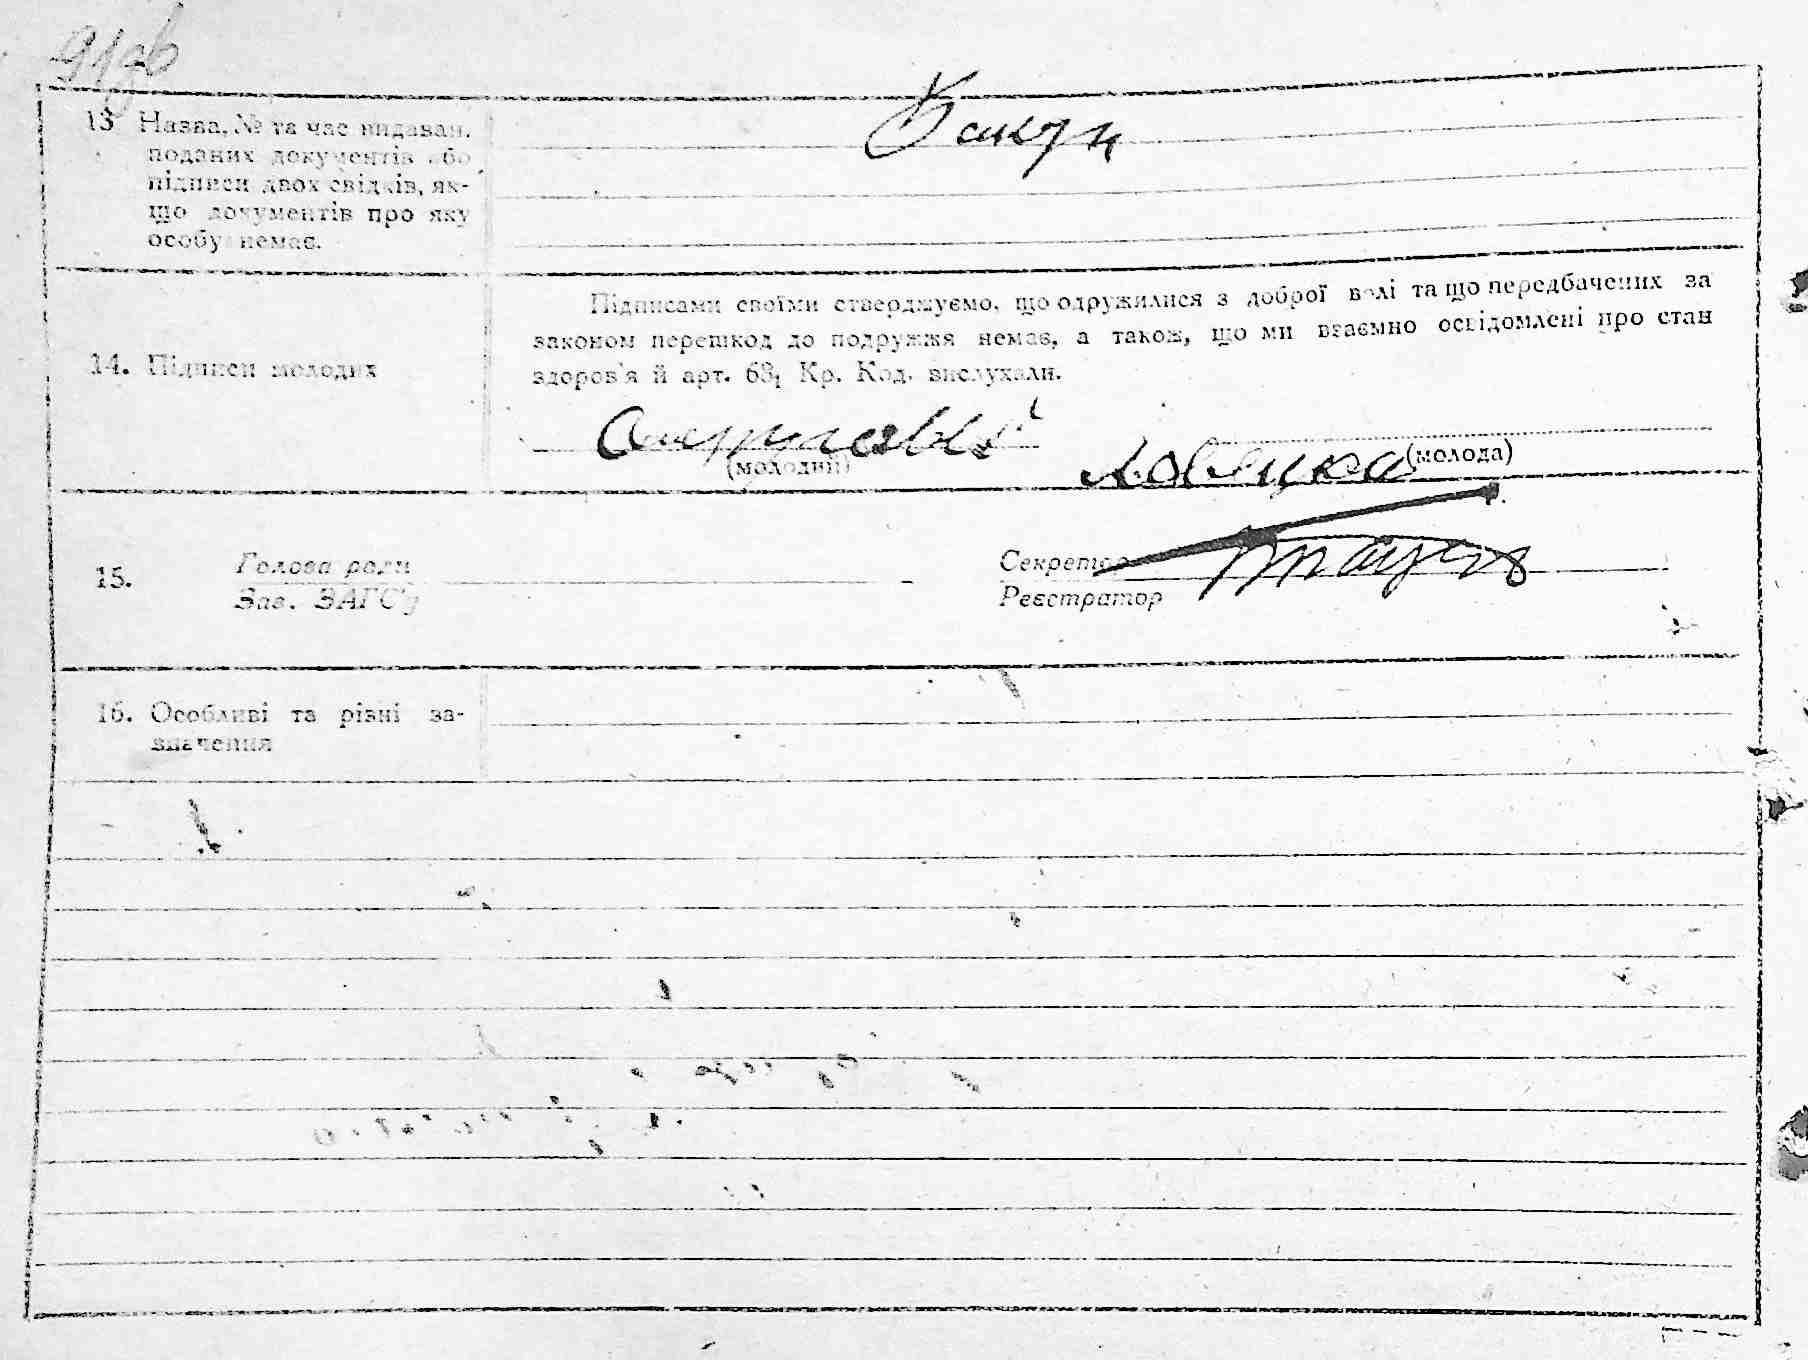 91зв
13 Назва, № та час видаван.
поданих документів або
підписи двох свідків, як-
що документів про яку
особу немає.
14. Підписи молодих
Підписами своїми стверджуємо, що одружилися з доброї волі та що передбачених за
законом перешкод до подружжя немає, а також, що ми взаємно освідомлені про стан
здоров'я й арт. 68₁ Кр. Код. вислухали.
(молодий)
(молода)
15.
Голова ради
Зав. ЗАГС'у
Секретар
Реєстратор
16. Особливі та різні за-
значення